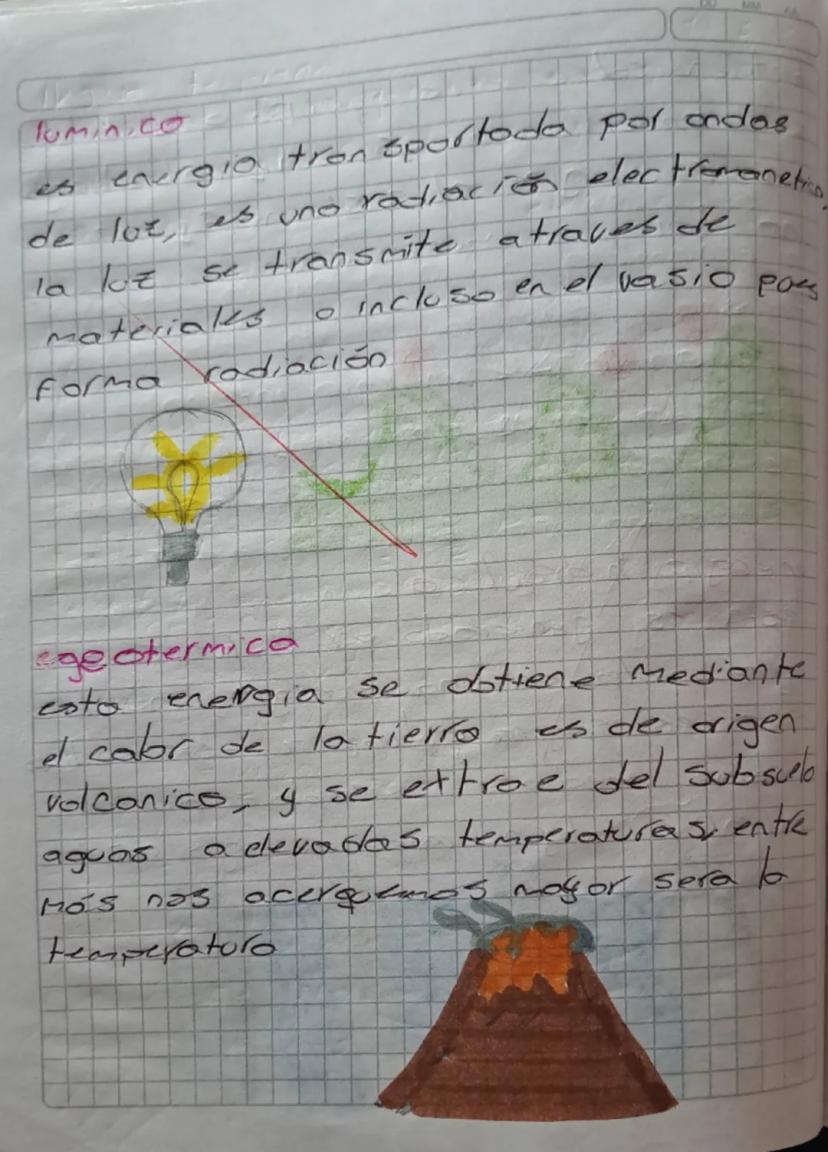 luminico
es energia transportada por ondas
de luz, es una radiación electromanetica,
la luz se transmite atraves de
materiales o incluso en el vasio pues
forma radiación
geotermica
esta energia se obtiene mediante
el calor de la tierra es de origen
volcanico, y se extrae del subsuelo
aguas a devadas temperaturas, entre
más nos acerquemos mayor sera la
temperatura